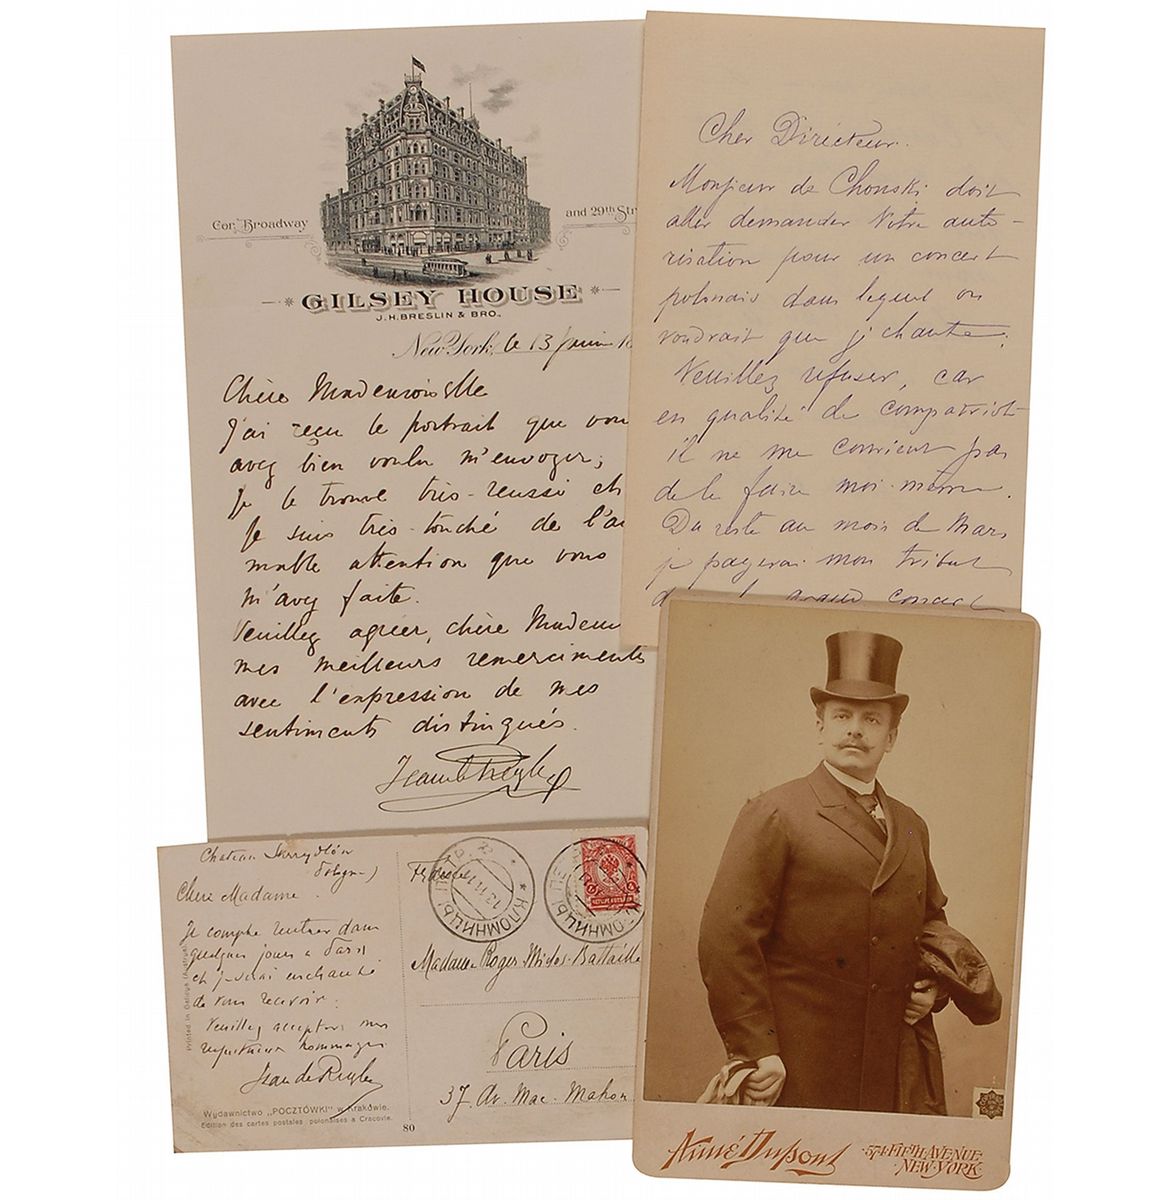 Cor. Broadway
and 29th Str
GILSEY HOUSE
J.H. BRESLIN & BRO.,
New York, le 13 juin 18
Chère Mademoiselle
J'ai reçu le portrait que vou
avez bien voulu m'envoyer;
je le trouve très-réussi et
je suis très-touché de l'ai
mable attention que vous
m'avez faite.
Veuillez agréer, chère Madem
mes meilleurs remerciments
avec l'expression de mes
sentiments distingués.
Jean de Reszke
Cher Directeur.
Monsieur de Chonski doit
aller demander Votre auto-
risation pour un concert
polonais dans lequel on
voudrait que je chante.
Veuillez refuser, car
en qualité de compatriot
il ne me convient pas
de le faire moi-même.
Du reste au mois de Mars
je payerai mon tribut
grand concert
Chateau
Pologne)
Chère Madame.
Je compte rentrer dans
quelques jours à Paris
et je serai enchanté
de vous recevoir.
Veuillez accepter mes
respectueux hommages
Jean de Reszke
Printed in Galicya (Austrya)
Wydawnictwo „POCZTÓWKI" w Krakówie.
Edition des cartes postales polonaises a Cracovie.
80
КЛОМНИЦЫ ПЕТР.
13 11 11
КЛОМНИЦЫ ПЕТР.
Madame Roger-Miclos-Battaille
Paris
37. Av. Mac-Mahon
Aimé Dupont
574 FIFTH AVENUE
NEW-YORK